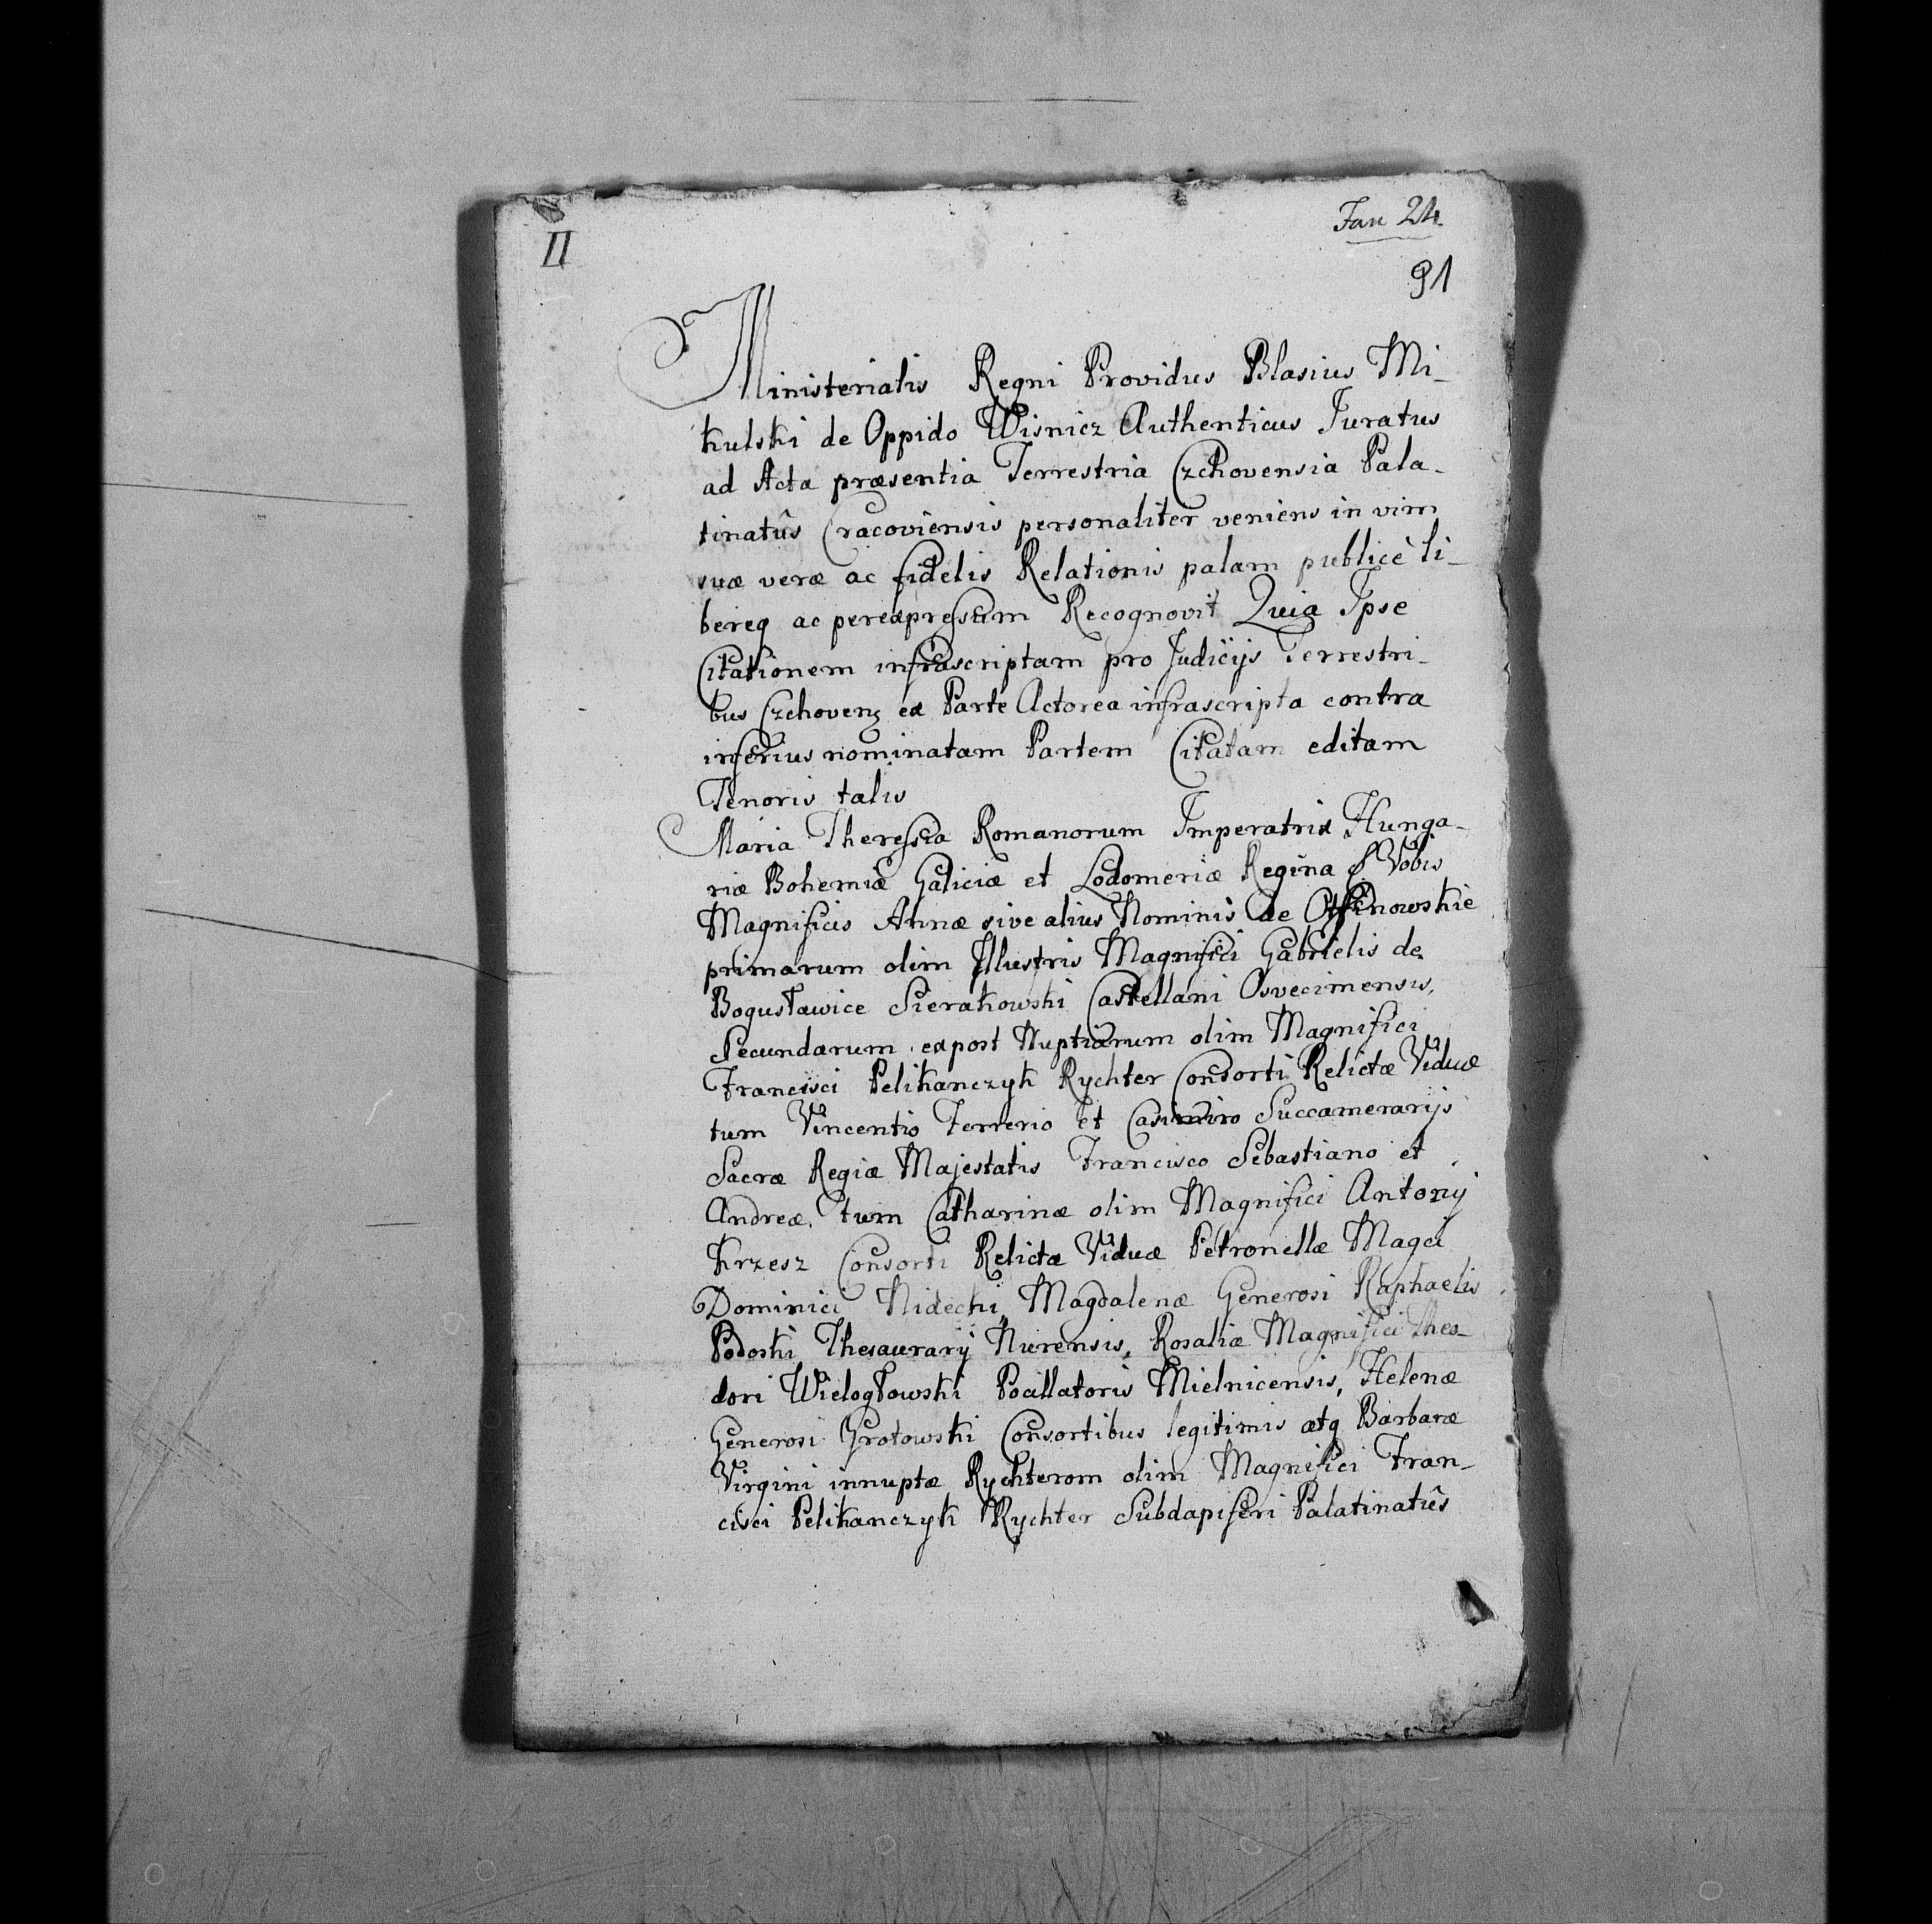 II
Jan 24.
91
Ministerialis Regni Providus Blasius Mi-
kulski de Oppido Wisnicz Authenticus Juratus
ad Acta præsentia Terrestria Czchovensia Pala-
tinatûs Cracoviensis personaliter veniens in vim
suæ veræ ac fidelis Relationis palam publicè li-
bereq ac perexpressum Recognovit Quia Ipse
Citationem infrascriptam pro Judicijs Terrestri-
bus Czchoven ex Parte Actorea infrascripta contra
inferius nominatam Partem Citatam editam
Tenoris talis
Maria Theressia Romanorum Imperatrix Hunga-
riæ Bohemiæ Galiciæ et Lodomeriæ Regina & Vobis
Magnificis Annæ sive alius Nominis de Otffinowskie
primarum olim Illustris Magnifici Gabrielis de
Bogusławice Sierakowski Castellani Osvecimensis,
Secundarum expost Nuptiarum olim Magnifici
Francisci Pelikanczyk Rychter Consorti Relictæ Viduæ
tum Vincentio Terrerio et Casimiro Succamerarijs
Sacræ Regiæ Majestatis Francisco Sebastiano et
Andreæ, tum Catharinæ olim Magnifici Antonij
Krzesz Consorti Relictæ Viduæ Petronellæ Magci
Dominici Nidecki, Magdalenæ Generosi Raphaelis
Podoski Thesaurarij Nurensis, Rosaliæ Magnifici Theo-
dori Wielogłowski Pocillatoris Mielnicensis, Helenæ
Generosi Grotowski Consortibus legitimis atq Barbaræ
Virgini innuptæ Rychterom olim Magnifici Fran-
cisci Pelikanczyk Rychter Subdapiferi Palatinatûs